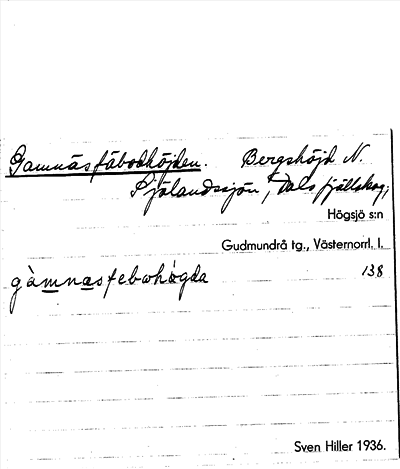 Gamnäsfäbodhöjden. Bergshöjd N.
Själandssjön, Dals fjällskog,
Högsjö s:n
Gudmundrå tg., Västernorrl. l.
gàmnasfebωhö̀gda 138
Sven Hiller 1936.